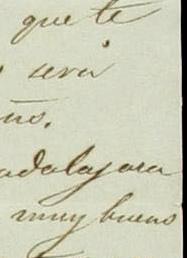 que te
será
ños.
adalajara
muy buenos